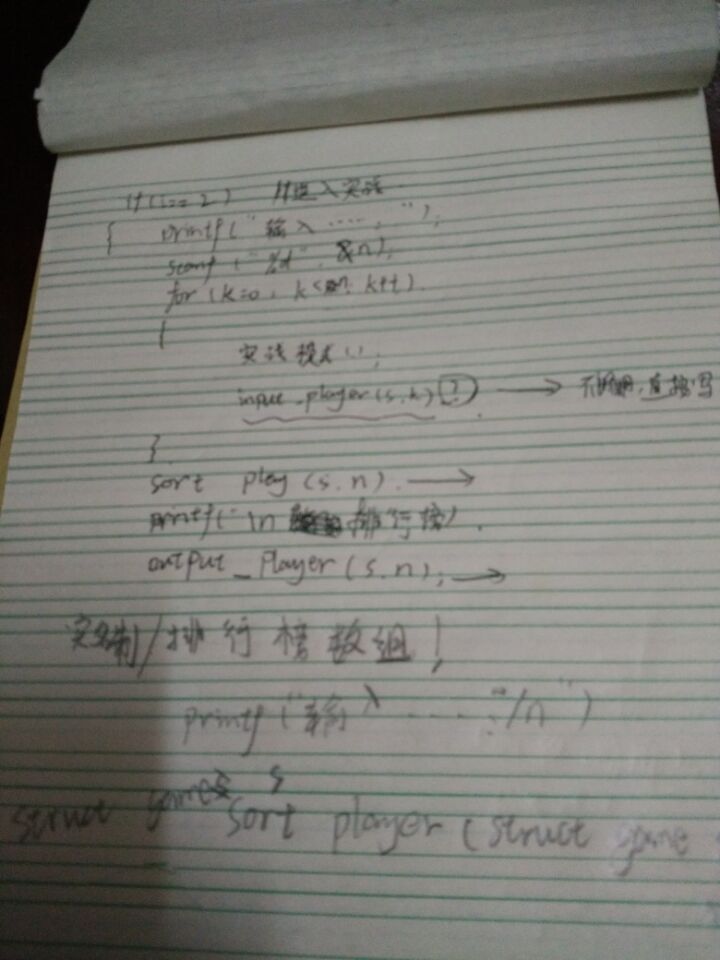 if (i==2) //进入实战
{ printf("输入 ...... ");
scanf ("%d", &n);
for (k=0; k<n; k++)
{
实战模式();
input_player(s,k) ? → 不调用,直接写
}
sort play (s.n). →
printf("\n 排行榜).
output_player(s.n); →
实名制/排行榜数组!
printf("输入 ...... :/n")
struct games s
sort player (struct game